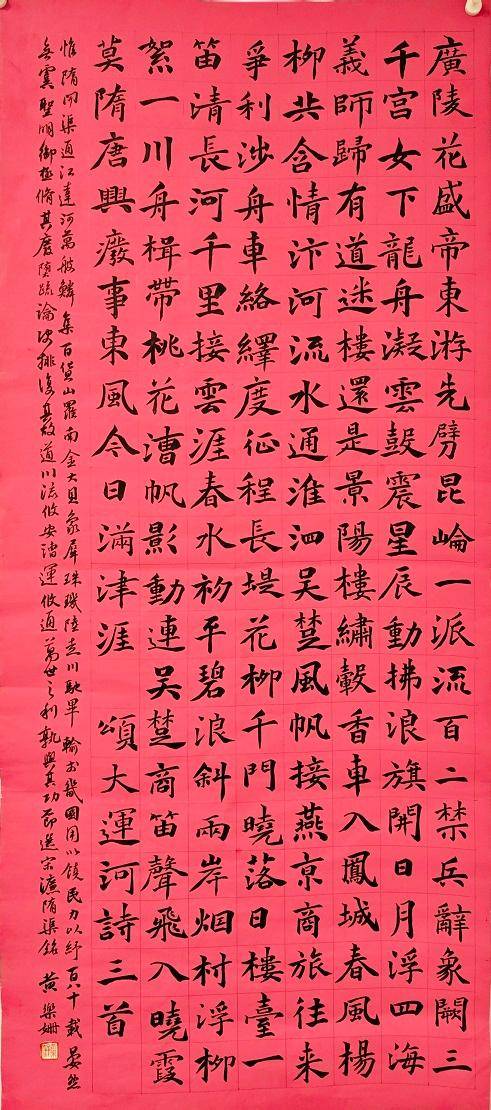 廣陵花盛帝東游先劈昆崘一派流百二禁兵辭象闕三
千宮女下龍舟凝雲鼓震星辰動拂浪旗開日月浮四海
義師歸有道迷樓還是景陽樓繡轂香車入鳳城春風楊
柳共含情汴河流水通淮泗吴楚風帆接燕京商旅往来
爭利涉舟車絡繹度征程長堤花柳千門曉落日樓臺一
笛清長河千里接雲涯春水初平碧浪斜兩岸烟村浮柳
絮一川舟楫帶桃花漕帆影動連吴楚商笛聲飛入曉霞
莫隋唐興廢事東風今日滿津涯 頌大運河詩三首
惟隋開渠通江達河萬艘鱗集百貨山羅南金大貝象犀珠璣陸走川馳畢輸於畿國用以饒民力以紓百八十載晏然
無虞聖明御極脩其廢墮疏淪決排復其故道川流攸安漕運攸通萬世之利孰與其功節選宋濂隋渠銘 黄樂姍